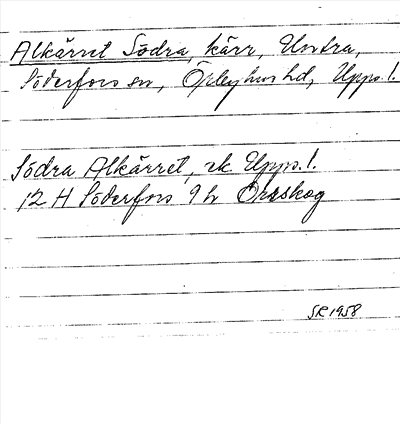 Alkärret Södra, kärr, Untra,
Söderfors sn, Örbyhus hd, Upps. l.
Södra Alkärret, ek Upps. l.
12 H Söderfors 9 h Öråskog
SR 1958